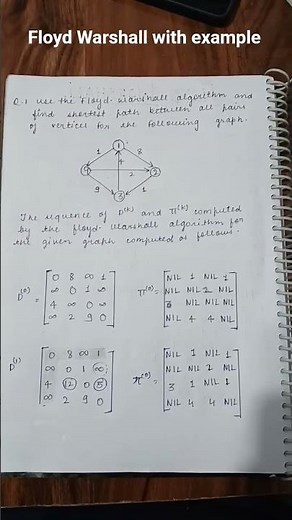 Floyd Warshall with example
Q.1 use the Floyd-Warshall algorithm and
find shortest path between all pairs
of vertices for the following graph.
1
1 8
4
4 2 2
9 1
3
The sequence of D(k) and π(k) computed
by the Floyd-Warshall algorithm for
the given graph computed as follows.
D(0) = 0 8 ∞ 1
∞ 0 1 ∞
4 ∞ 0 ∞
∞ 2 9 0
π(0) = NIL 1 NIL 1
NIL NIL 2 NIL
3 NIL NIL NIL
NIL 4 4 NIL
D(1) = 0 8 ∞ 1
∞ 0 1 ∞
4 12 0 5
∞ 2 9 0
π(0) = NIL 1 NIL 1
NIL NIL 2 NIL
3 1 NIL 1
NIL 4 4 NIL